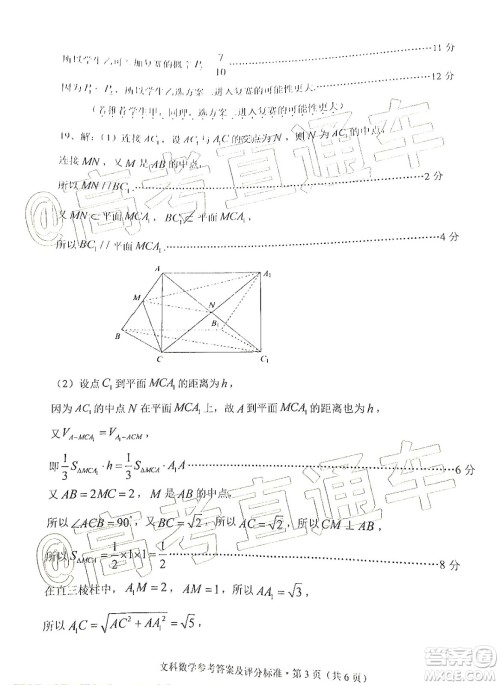 所以学生乙 加复赛的概率P₂ 7/10 ……11 分
因为P₁ P₂，所以学生乙选方案 进入复赛的可能性更大 ……12 分
（若推荐学生甲，同理，选方案 进入复赛的可能性更大）
19．解：（1）连接 AC₁，设 AC₁与A₁C的交点为N，则N为AC₁的中点，
连接 MN，又M是AB的中点，
所以 MN//BC₁ ……2 分
又 MN⊂平面MCA₁，BC₁⊄平面MCA₁，
所以 BC₁//平面MCA₁ ……4 分
A A₁
M N
B B₁
C C₁
（2）设点C₁到平面MCA₁的距离为h，
因为AC₁的中点N在平面MCA₁上，故A到平面MCA₁的距离也为h，
又V_{A−MCA₁}=V_{A₁−ACM}，
即 1/3 S_{ΔMCA₁}·h = 1/3 S_{ΔMCA}·A₁A ……6 分
又AB=2MC=2，M是AB的中点，
所以∠ACB=90°，又AC=BC，所以CM⊥AB，
所以S_{ΔMCA}=1/2×1×1=1/2 ……8 分
在直三棱柱中，A₁A=2，AM=1，所以A₁M=√5，
所以A₁C=√(AC²+AA₁²)=√6，
文科数学参考答案及评分标准·第 3 页（共 6 页）
@高考直通车
@高考直通车